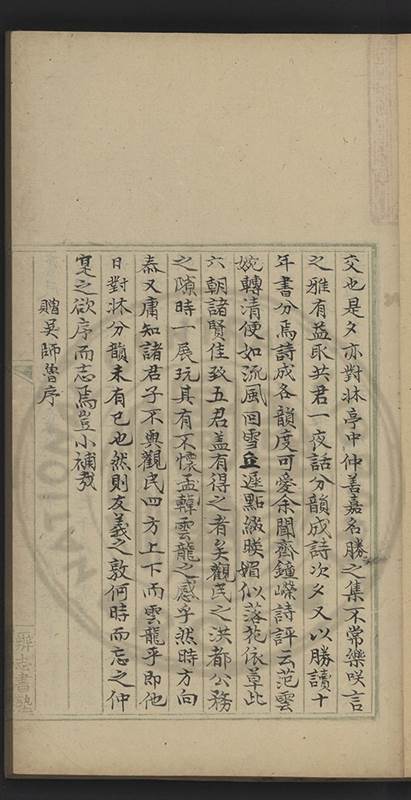 交也是夕亦對牀亭中仲善嘉名勝之集不常樂咲言
之雅有益取共君一夜話分韻成詩次夕又以勝讀十
年書分焉詩成各韻度可愛余聞齊鐘嶸詩評云范雲
婉轉清便如流風回雪丘遲點綴暎媚似落花依草此
六朝諸賢佳致五君盖有得之者矣觀民之洪都公務
之隙時一展玩其有不懷孟韓雲龍之感乎然時方向
泰又庸知諸君子不與觀民四方上下而雲龍乎即他
日對牀分韻未有已也然則友義之敦何時而忘之仲
寔之欲序而志焉豈小補哉
贈吴師魯序
辨志書塾